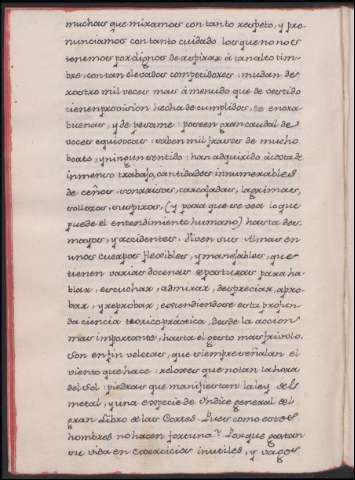 muchas que miramos con tanto respeto, y pro-
nunciamos con tanto cuidado los que no nos
tenemos por dignos de aspirar à tan alto tim-
bre, con tan elevados competidores: mudan de
rostro mil veces mas á menudo que de vestido
tienen provision hecha de cumplidos, de enora-
buenas, y de pesame: poseen gran caudal de
voces equivocas: saben mil frases de mucho
boato, y ningun sentido: han adquirido à costa de
inmenso trabajo, cantidades innumerables
de ceños, sonrisas, carcajadas, lagrimas,
sollozos, suspiros, (y para que se vea lo que
puede el entendimiento humano) hasta des-
mayos, y accidentes. Viven sus Almas en
unos cuerpos flexibles, y manejables, que
tienen varias docenas de posturas para ha-
blar, escuchar, admirar, despreciar, apro-
bar, y reprobar, estendiendose esta profun-
da ciencia teorico-práctica, desde la accion
mas importante, hasta el gesto mas frivolo.
Son en fin veletas, que siempre señalan el
viento que hace: reloxes que notan la hora
del Sol: piedras que manifiestan la ley del
metal, y una especie de Yndice general del
gran Libro de las Cortes. Pues como estos
hombres no hacen fortuna? Porque gastan
su vida en exercicios inutiles, y vagos